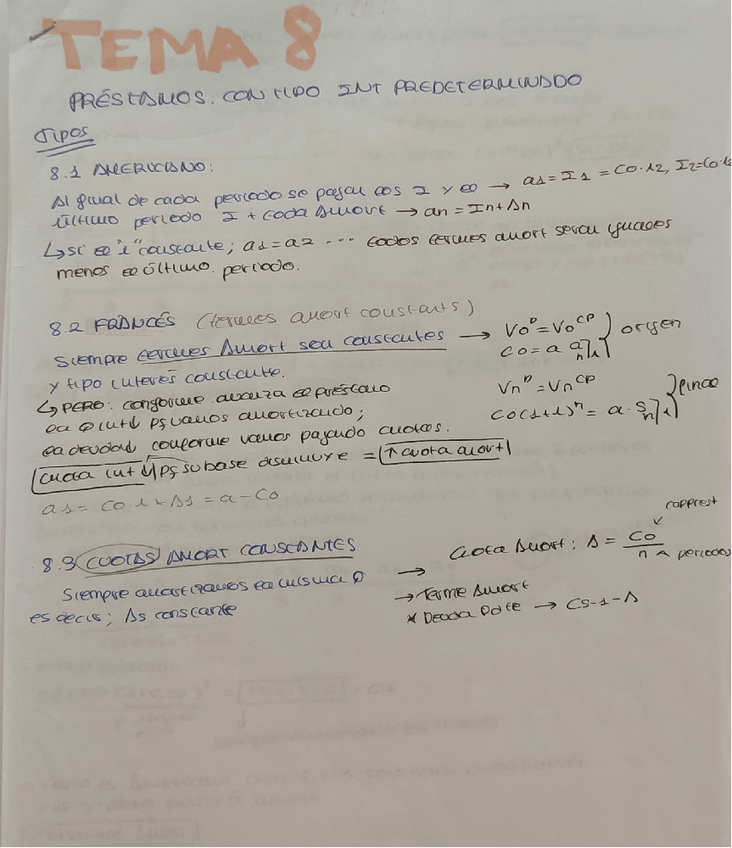 TEMA 8
PRÉSTAMOS. CON TIPO INT PREDETERMINADO
TIPOS
8.1 AMERICANO:
Al final de cada periodo se pagan los I y el → a1 = I1 = C0·i2, I2=C0·i
último periodo I + toda Amort → an = In + An
↳ si el "i" constante; a1 = a2 .... todos termes amort seran iguales
menos el último periodo.
8.2 FRANCÉS (termes amort constants)
Siempre termes Amort son constantes → V0ᴾ = V0ᶜᴾ
y tipo interés constante. C0 = a a n⌉i } origen
↳ PERO: conforme avanza el préstamo Vnᴾ = Vnᶜᴾ
la C int ↓ pq vamos amortizando; C0(1+i)ⁿ = a · S n⌉i } final
la deuda conforme vamos pagando cuotas.
cuota int ↓ pq su base disminuye = ↑ cuota amort
as = C0 i + As = a - C0
8.3 CUOTAS AMORT CONSTANTES
Siempre amortizamos la misma →
es decir; As constante
Cuota Amort: A = C0 / n
capprest
periodos
→ Terme Amort
* Deuda Pdte → Cs-1 - A